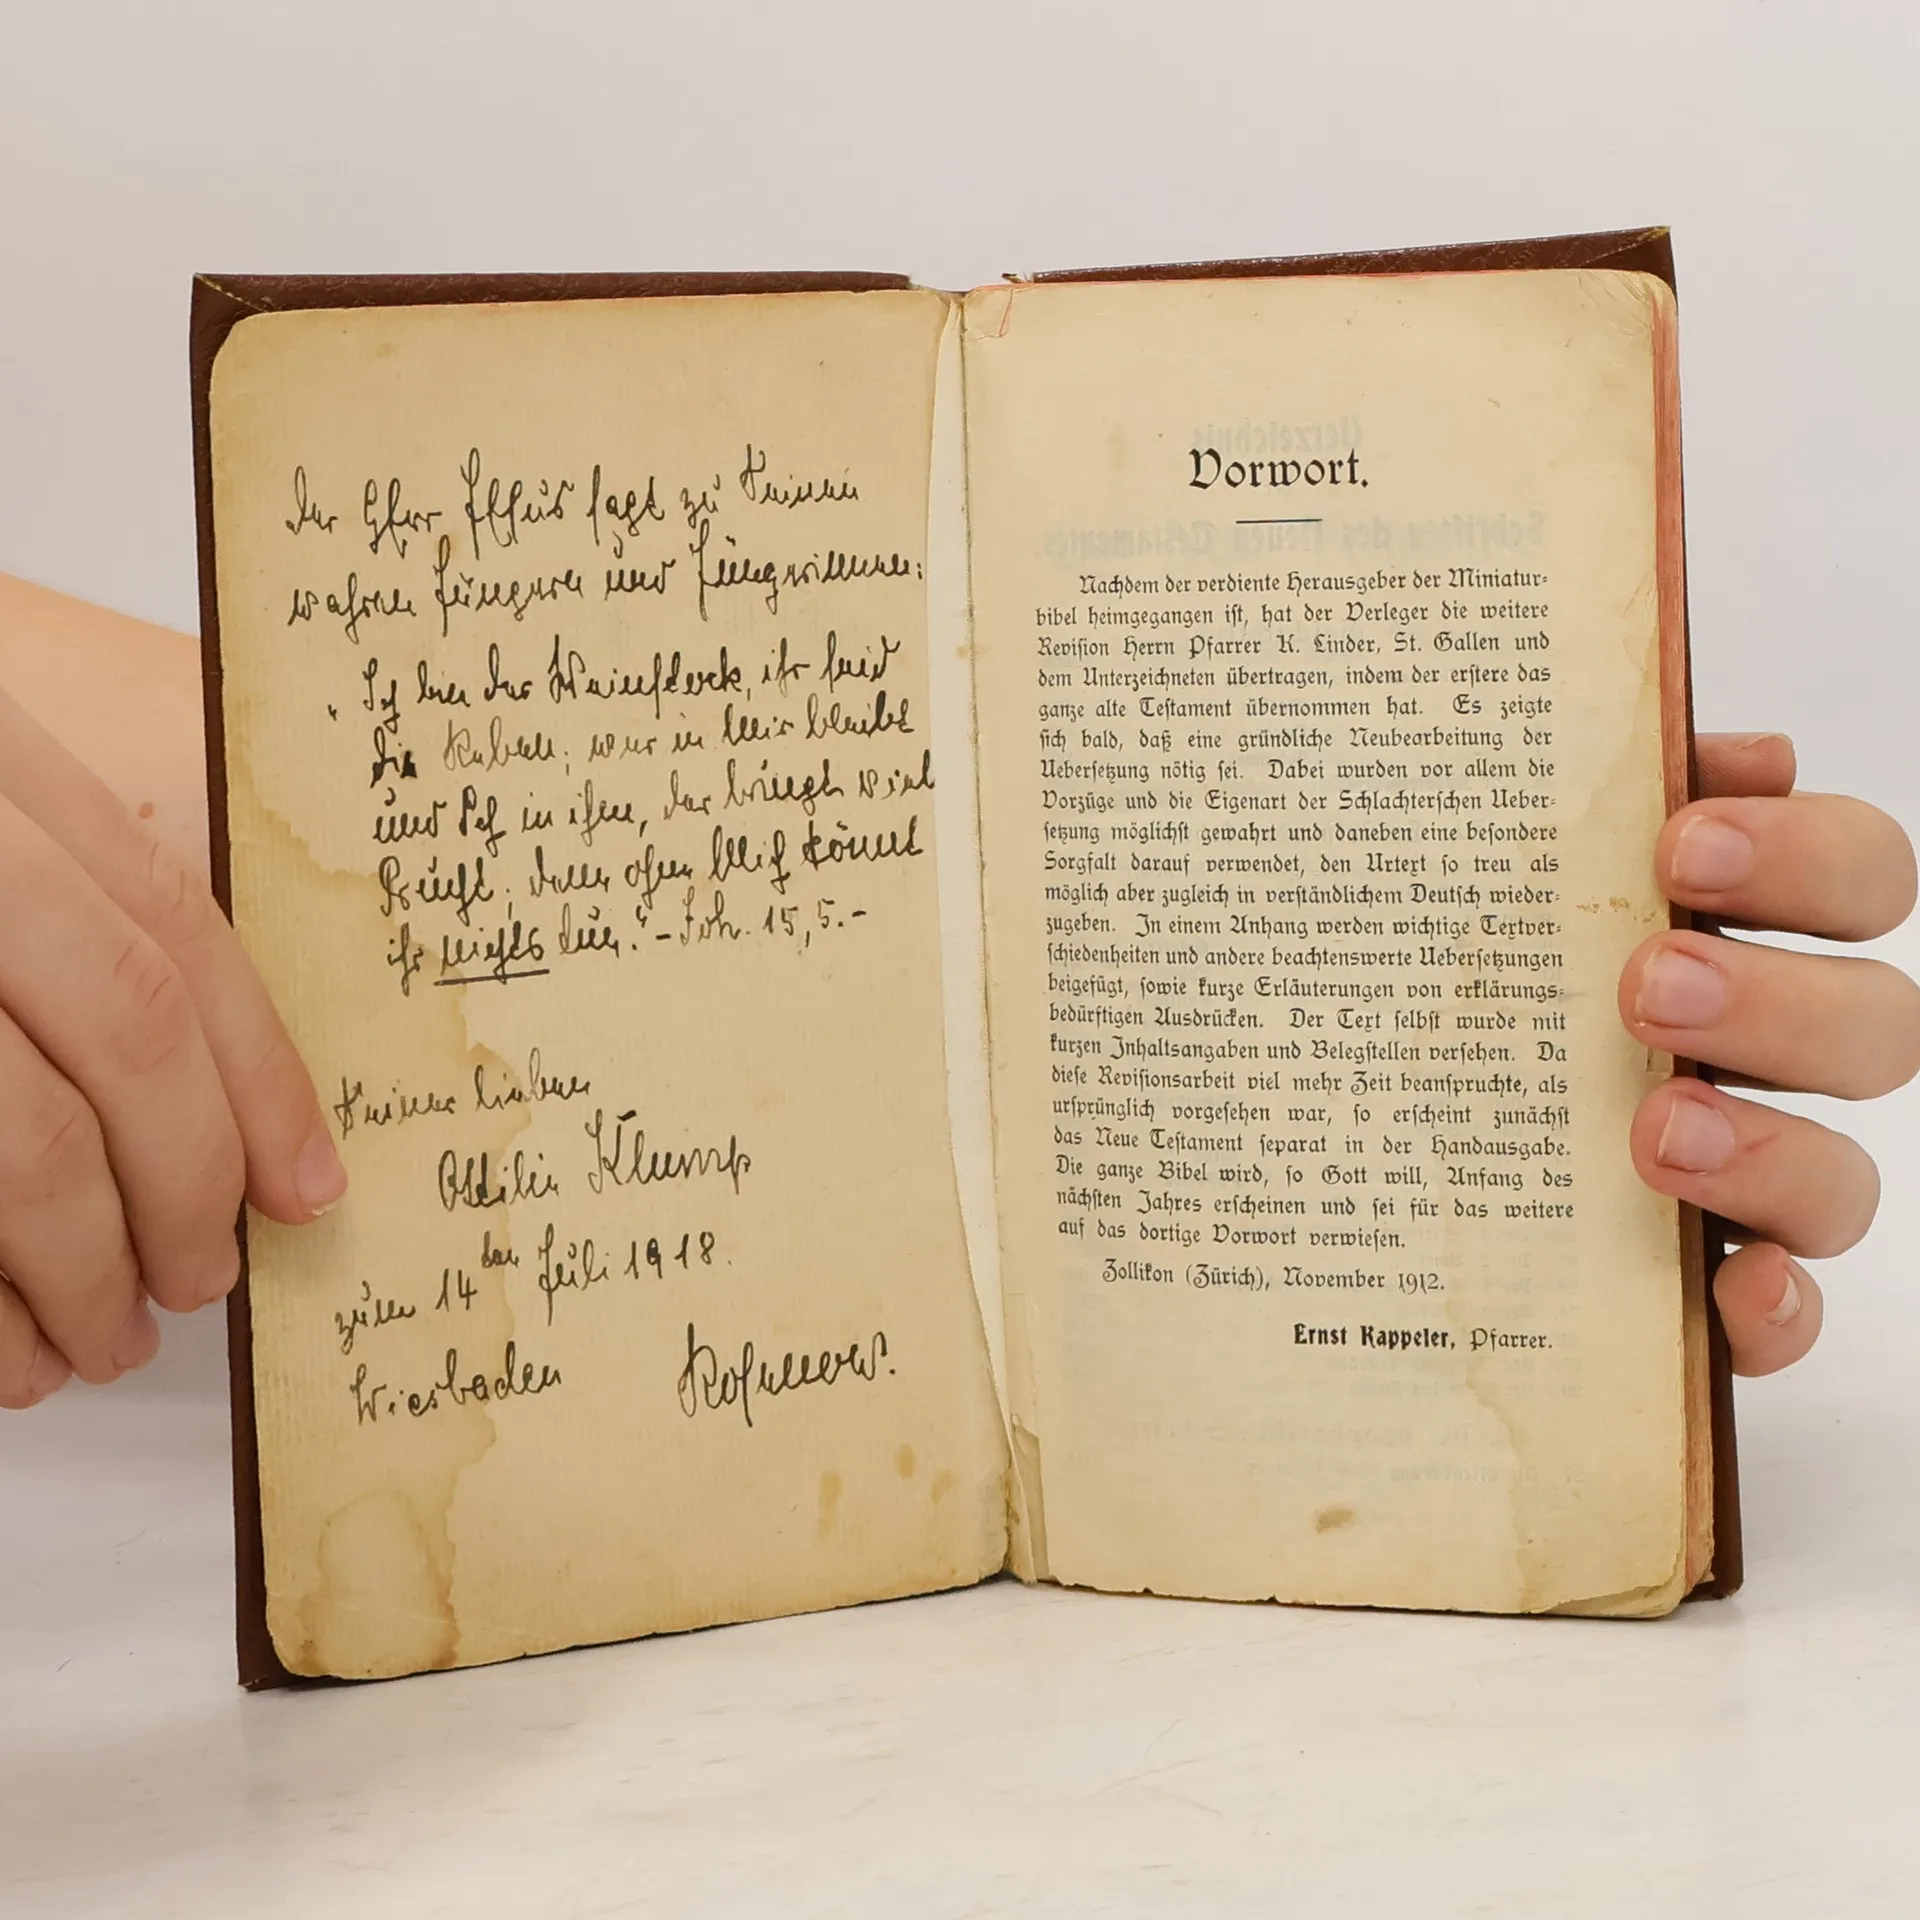 Der HErr JEsus sagt zu Seinen
wahren Jüngern und Jüngerinnen:
„Ich bin der Weinstock, ihr seid
die Reben; wer in Mir bleibt
und Ich in ihm, der bringt viel
Frucht; denn ohne Mich könnt
ihr nichts tun.“ – Joh. 15, 5. –
Seiner lieben
Ottilie Klump
zum 14ten Juli 1918.
Wiesbaden
Vorwort.
Nachdem der verdiente Herausgeber der Miniatur-
bibel heimgegangen ist, hat der Verleger die weitere
Revision Herrn Pfarrer K. Linder, St. Gallen und
dem Unterzeichneten übertragen, indem der erstere das
ganze alte Testament übernommen hat. Es zeigte
sich bald, daß eine gründliche Neubearbeitung der
Uebersetzung nötig sei. Dabei wurden vor allem die
Vorzüge und die Eigenart der Schlachterschen Ueber-
setzung möglichst gewahrt und daneben eine besondere
Sorgfalt darauf verwendet, den Urtext so treu als
möglich aber zugleich in verständlichem Deutsch wieder-
zugeben. In einem Anhang werden wichtige Textver-
schiedenheiten und andere beachtenswerte Uebersetzungen
beigefügt, sowie kurze Erläuterungen von erklärungs-
bedürftigen Ausdrücken. Der Text selbst wurde mit
kurzen Inhaltsangaben und Belegstellen versehen. Da
diese Revisionsarbeit viel mehr Zeit beanspruchte, als
ursprünglich vorgesehen war, so erscheint zunächst
das Neue Testament separat in der Handausgabe.
Die ganze Bibel wird, so Gott will, Anfang des
nächsten Jahres erscheinen und sei für das weitere
auf das dortige Vorwort verwiesen.
Zollikon (Zürich), November 1912.
Ernst Kappeler, Pfarrer.